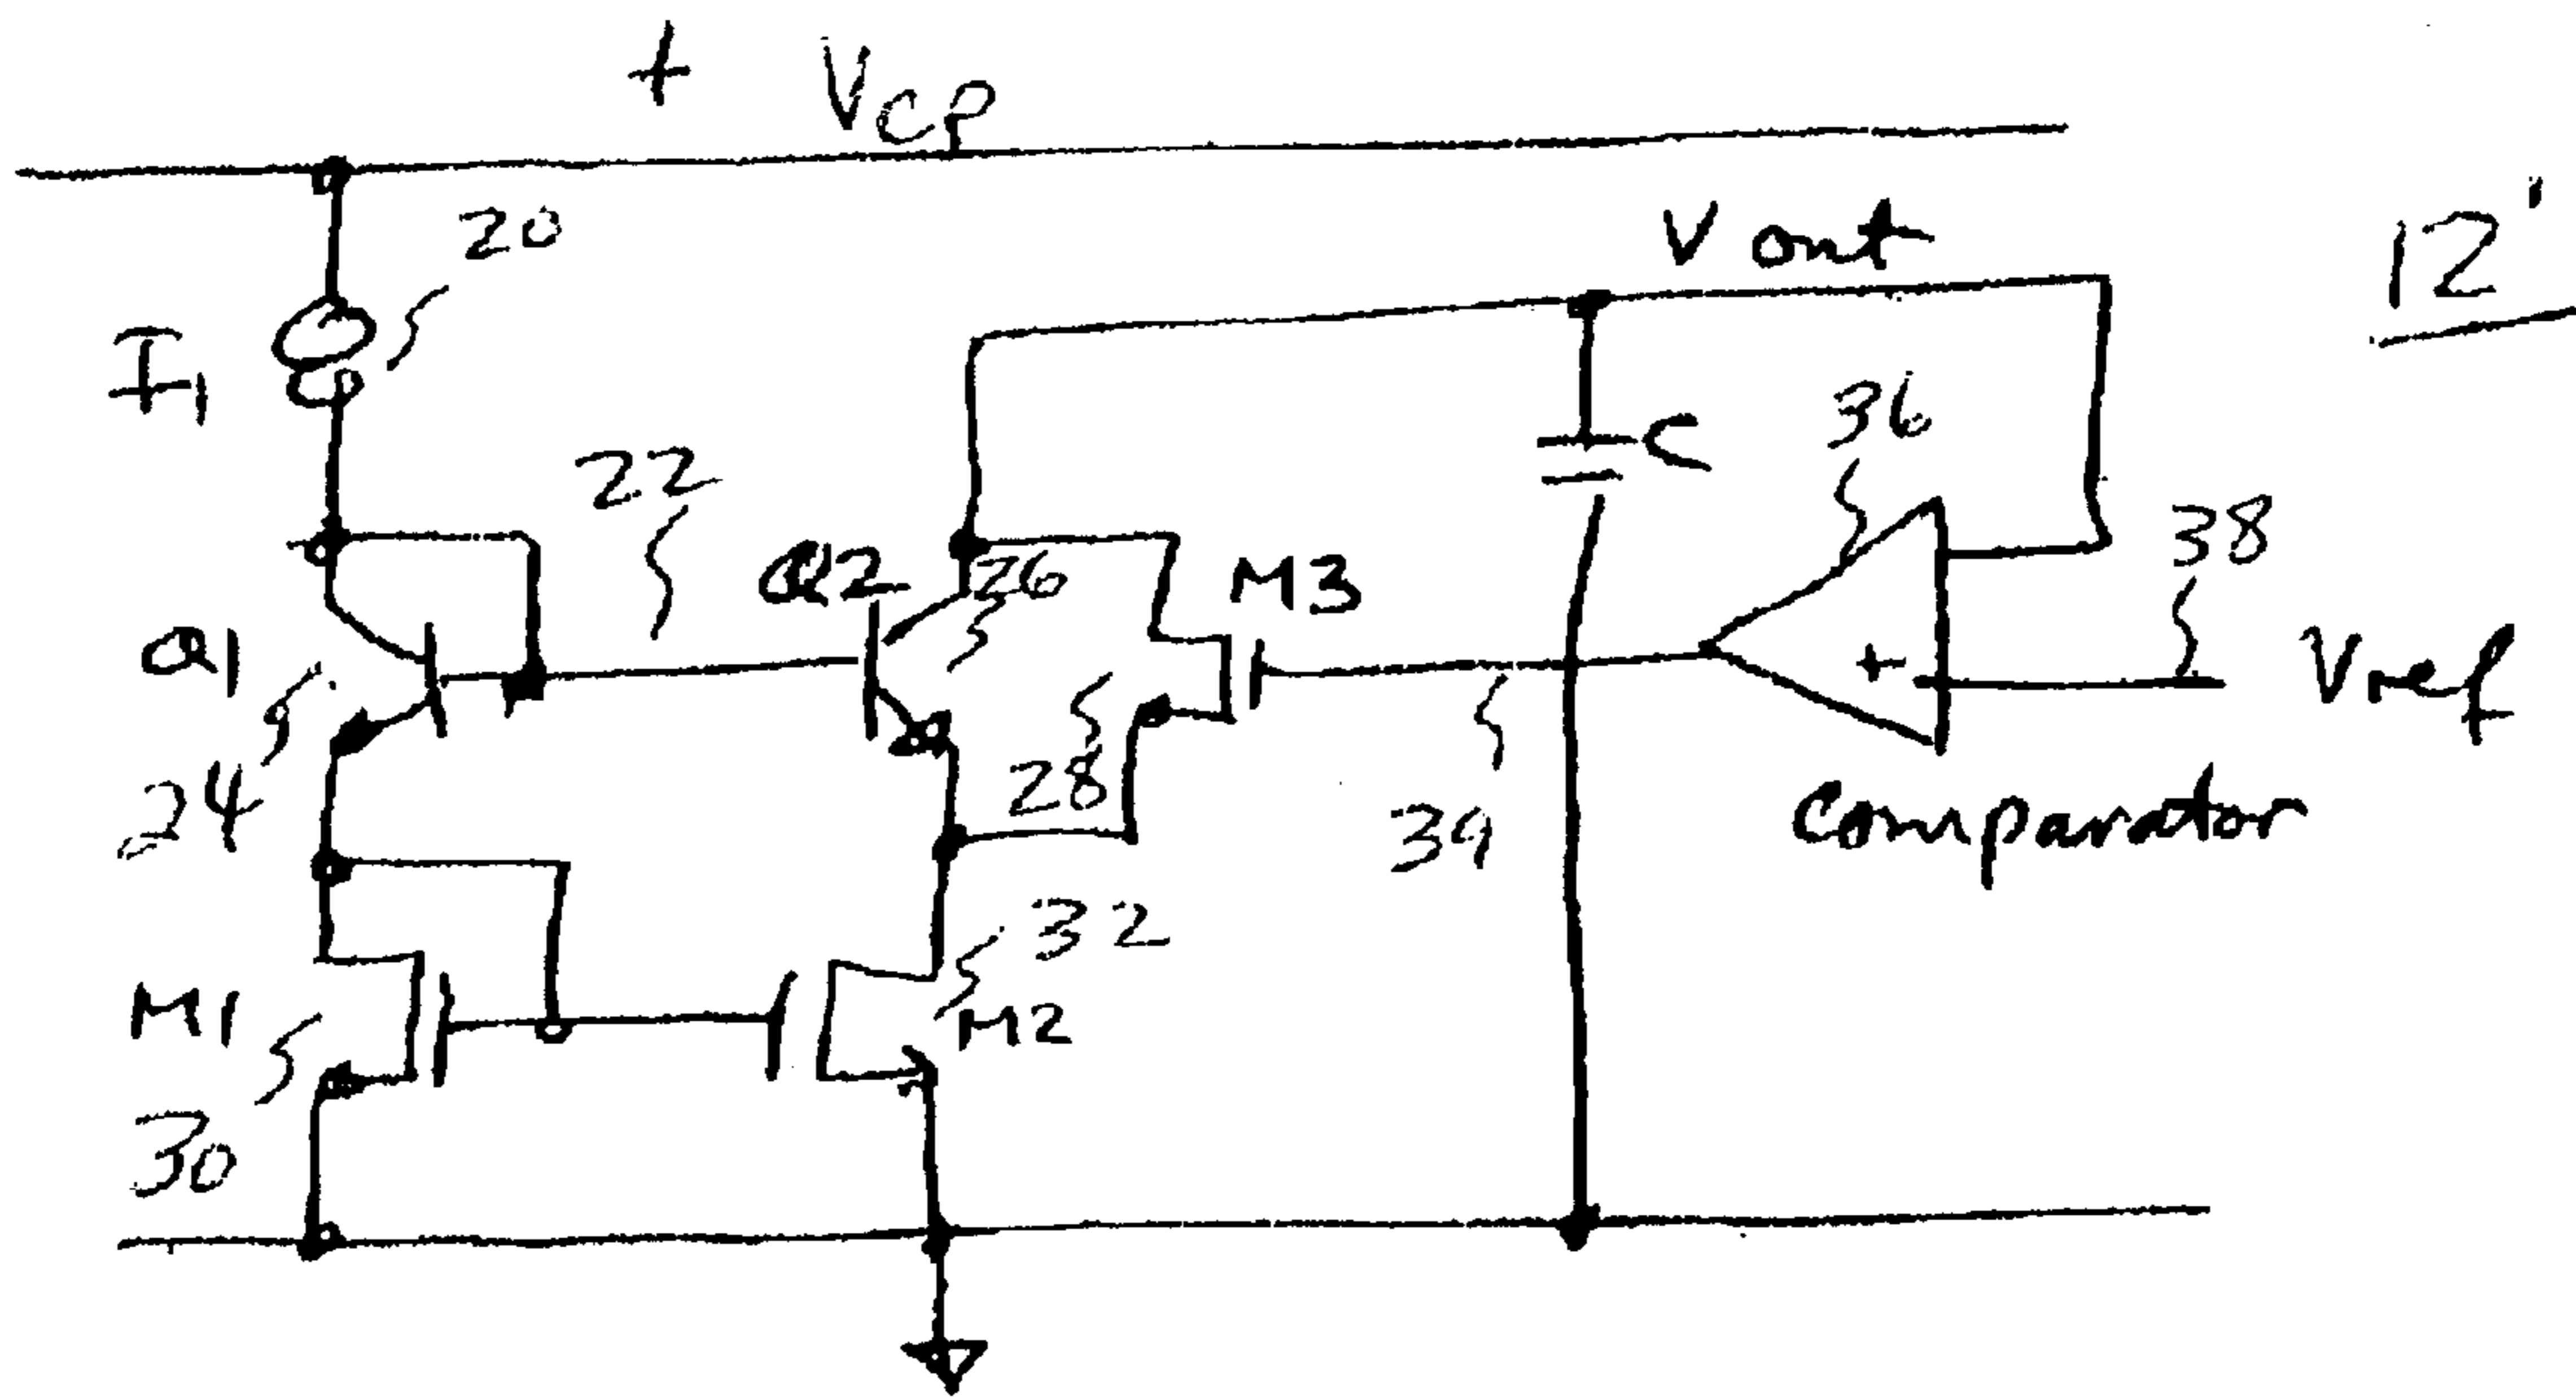 + VCP
20
I1
V out
12'
22
36
C
38
Q1
Q2
26
M3
+
Vref
24
28
39
Comparator
32
M1
M2
30